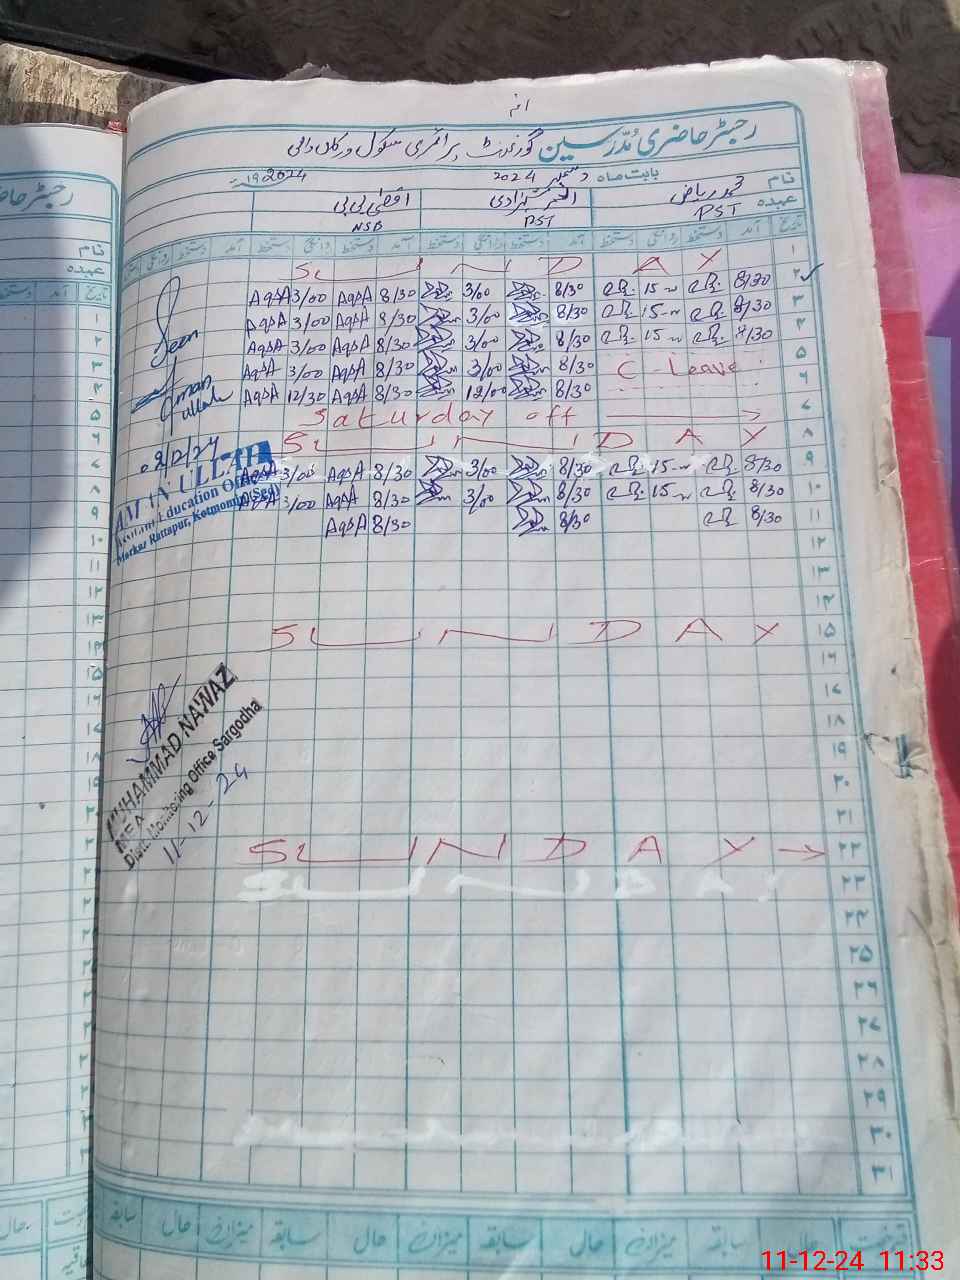 رجسٹر حاضری مدرسین گورنمنٹ پرائمری سکول
بابت ماہ دسمبر 2024 192024
نام محمد ریاض
عہدہ PST PST اقصیٰ بی بی NSB
تاریخ آمد دستخط روانگی دستخط آمد دستخط روانگی دستخط آمد دستخط روانگی دستخط
۱ SUNDAY
۲ 8/30 15 8/30 3/00 8/30 AqsA 3/00 AqsA
۳ 8/30 15 8/30 3/00 8/30 AqsA 3/00 AqsA
۴ 8/30 15 8/30 3/00 8/30 AqsA 3/00 AqsA
۵ C-Leave 8/30 3/00 8/30 AqsA 3/00 AqsA
۶ 8/30 12/00 8/30 AqsA 12/30 AqsA
۷ Saturday off
۸ SUNDAY
۹ 8/30 15 8/30 3/00 8/30 AqsA 3/00 AqsA
۱۰ 8/30 15 8/30 3/00 8/30 AqsA 3/00 AqsA
۱۱ 8/30 8/30 8/30 AqsA
۱۲
۱۳
۱۴
۱۵ SUNDAY
۱۶
۱۷
۱۸
۱۹
۲۰
۲۱
۲۲ SUNDAY
۲۳ SUNDAY
۲۴
۲۵
۲۶
۲۷
۲۸
۲۹
۳۰
۳۱
Seen
Aman Ullah
02/12/24
AMAN ULLAH
Assistant Education Officer
MUHAMMAD NAWAZ
MEA
Distt. Monitoring Office Sargodha
11-12-24
حال سابقہ میزان حال سابقہ میزان حال سابقہ میزان حال سابقہ
11-12-24 11:33